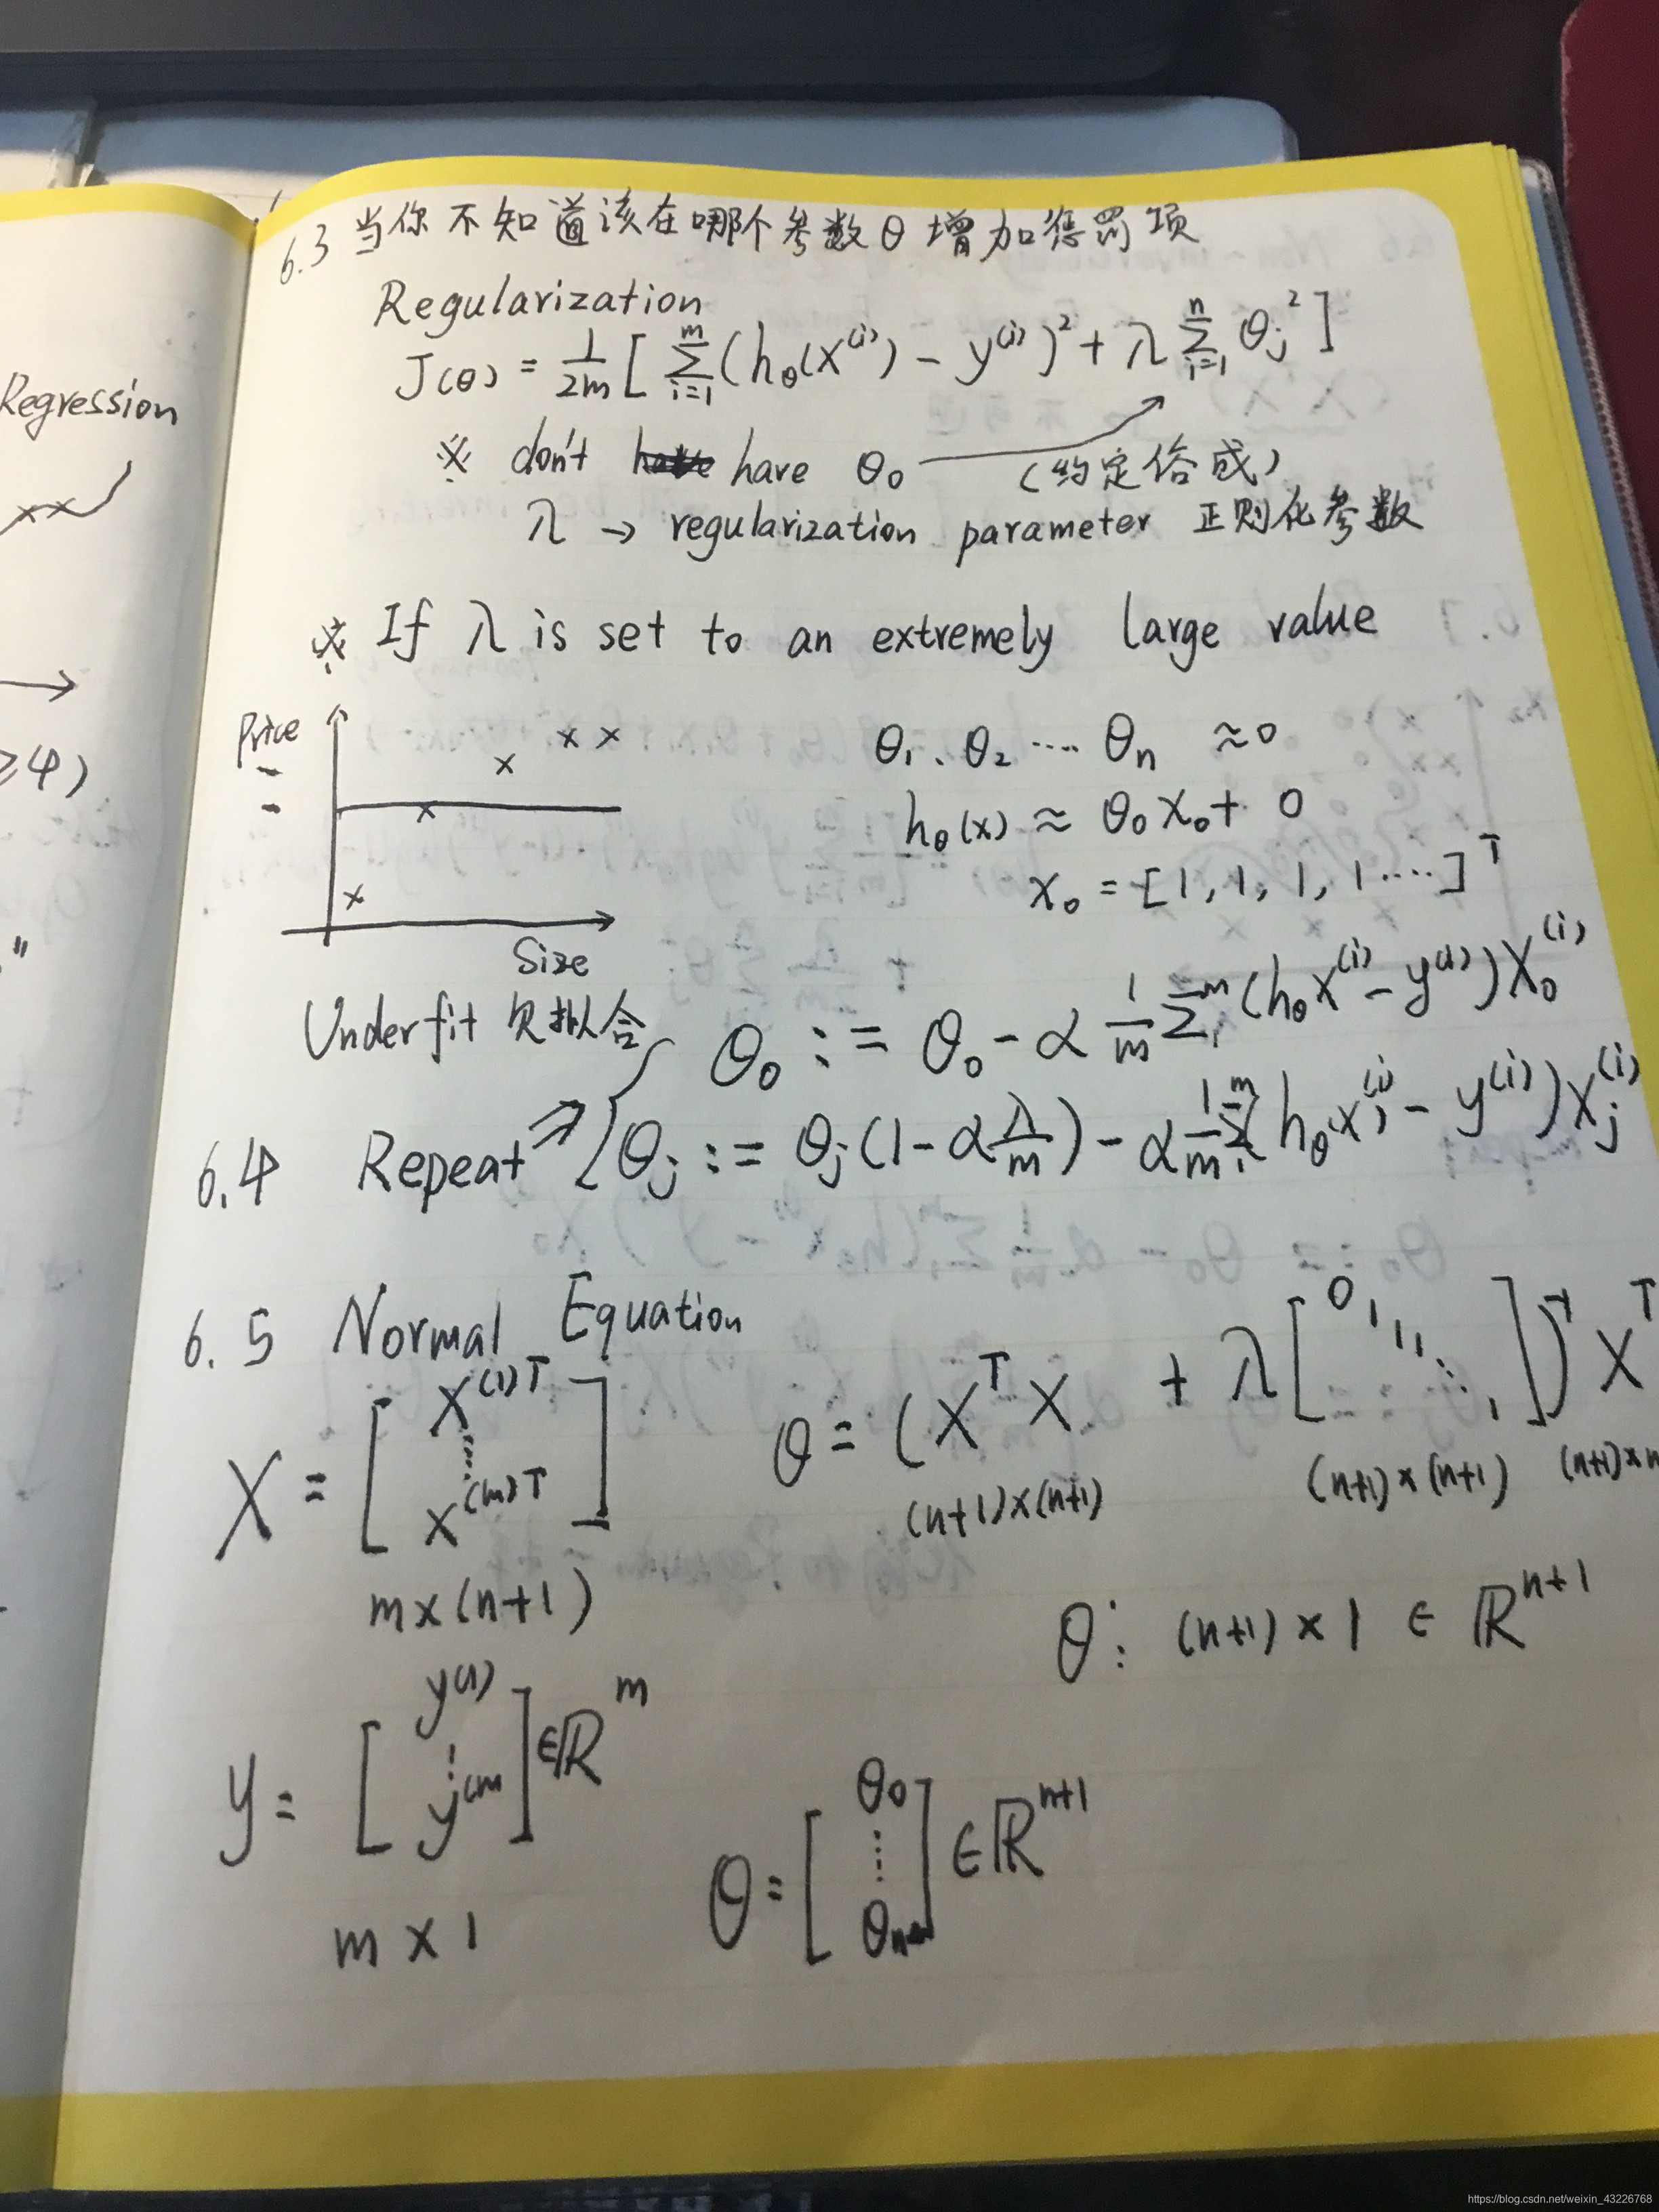 Regression
≥4)
"
6.3 当你不知道该在哪个参数θ增加惩罚项
Regularization
J(θ) = 1/2m [ Σ_{i=1}^{m} (h_θ(x^(i)) - y^(i))² + λ Σ_{i=1}^{n} θ_j² ]
※ don't have θ₀ (约定俗成)
λ → regularization parameter 正则化参数
※ If λ is set to an extremely large value
Price
Size
θ₁、θ₂ ···· θ_n ≈0
h_θ(x) ≈ θ₀x₀+ 0
x₀ = [1, 1, 1, 1 ····]^T
Underfit 欠拟合
θ₀ := θ₀ - α 1/m Σ_i^m (h_θ x^(i) - y^(i)) x₀^(i)
6.4 Repeat ⇒ { θ_j := θ_j (1 - α λ/m) - α 1/m Σ_i^m (h_θ x^(i) - y^(i)) x_j^(i)
6.5 Normal Equation
X = [ x^(1)T ⋮ x^(m)T ]
m×(n+1)
θ = (X^T X + λ [ 0 1 1 1 ⋱ 1 ])^-1 X^T
(n+1)×(n+1) (n+1)×(n+1) (n+1)×m
θ: (n+1) × 1 ∈ ℝ^{n+1}
y = [ y^(1) ⋮ y^(m) ] ∈ℝ^m
m × 1
θ = [ θ₀ ⋮ θ_n ] ∈ℝ^{n+1}
https://blog.csdn.net/weixin_43226768